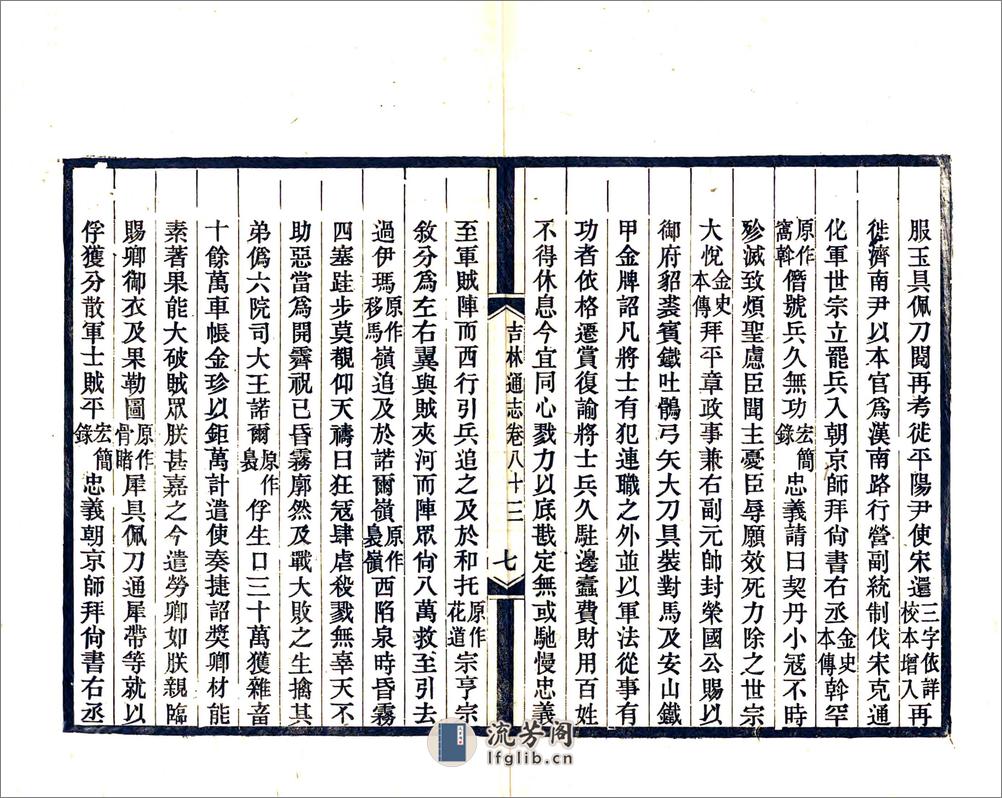 服玉具佩刀閱再考徙平陽尹使宋還三字依詳校本增入再
徙濟南尹以本官爲漢南路行營副統制伐宋克通
化軍世宗立罷兵入朝京師拜尚書右丞金史本傳斡罕
原作窩斡僭號兵久無功宏簡錄忠義請曰契丹小冦不時
殄滅致煩聖慮臣聞主憂臣辱願效死力除之世宗
大悅金史本傳拜平章政事兼右副元帥封榮國公賜以
御府貂裘賓鐵吐鶻弓矢大刀具裝對馬及安山鐵
甲金牌詔凡將士有犯連職之外並以軍法從事有
功者依格遷賞復諭將士兵久駐邊蠹費財用百姓
不得休息今宜同心戮力以底戡定無或馳慢忠義
吉林通志卷八十三
七
至軍賊陣而西行引兵追之及於和托原作花道宗亨宗
敘分爲左右翼與賊夾河而陣眾尚八萬救至引去
過伊瑪原作移馬嶺追及於諾爾嶺原作裊嶺西陷泉時昏霧
四塞跬步莫覩仰天禱曰狂冦肆虐殺戮無辜天不
助惡當爲開霽祝已昏霧廓然及戰大敗之生擒其
弟僞六院司大王諾爾原作裊俘生口三十萬獲雜畜
十餘萬車帳金珍以鉅萬計遣使奏捷詔奬卿材能
素著果能大破賊眾朕甚嘉之今遣勞卿如朕親臨
賜卿御衣及果勒圖原作骨睹犀具佩刀通犀帶等就以
俘獲分散軍士賊平宏簡錄忠義朝京師拜尚書右丞
流芳阁
lfglib.cn